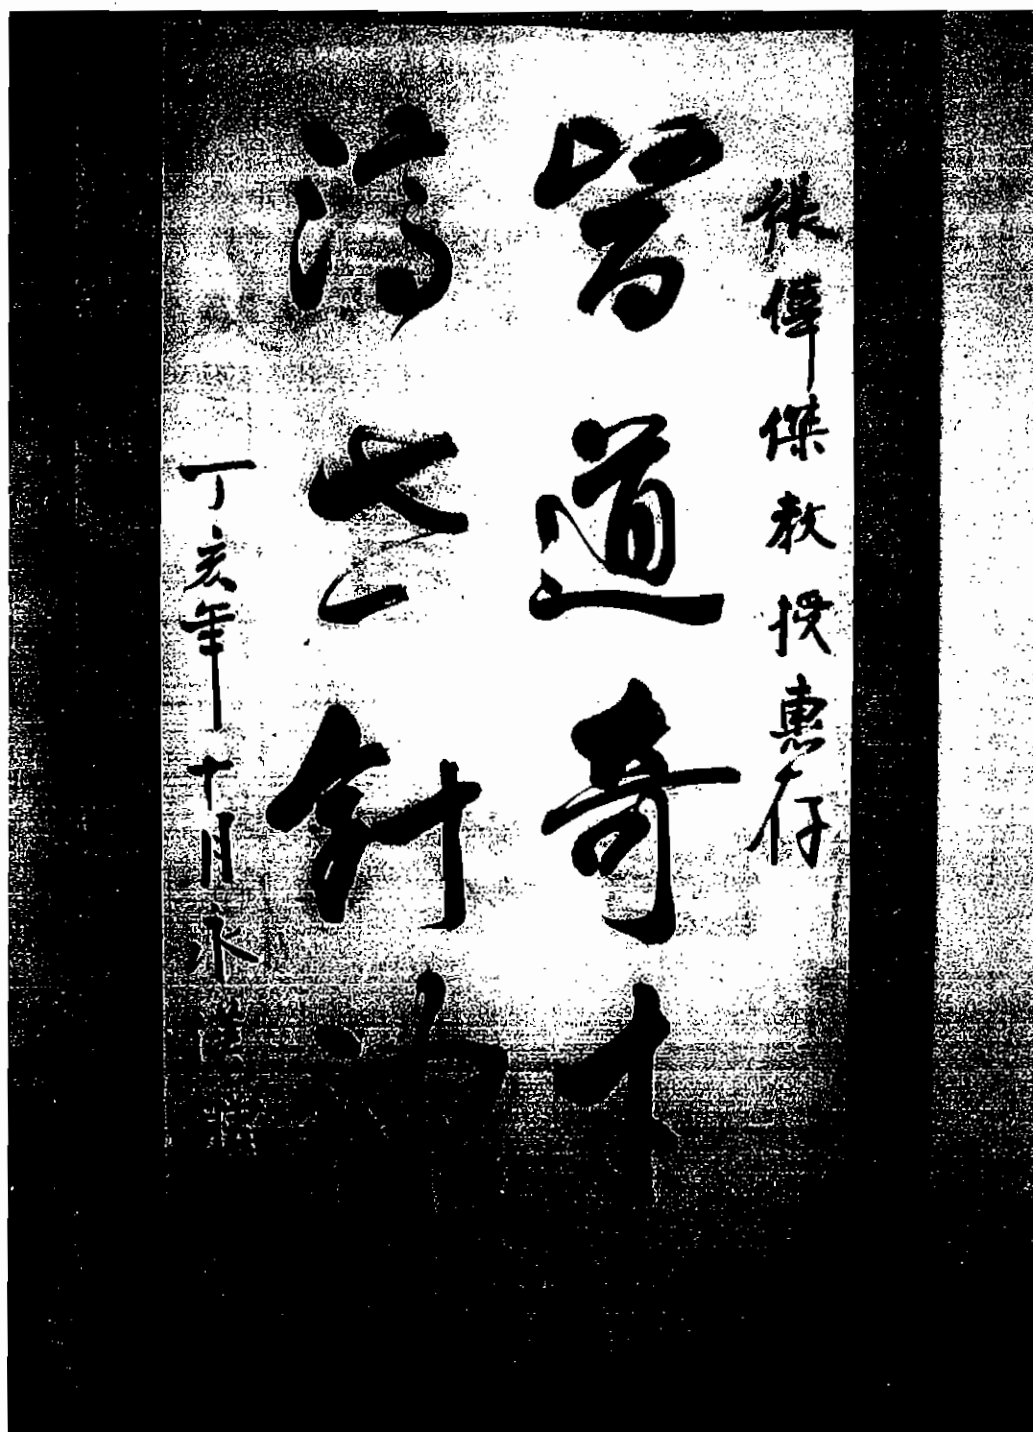 張偉傑教授惠存
醫道奇才
濟世針
丁亥年十月永